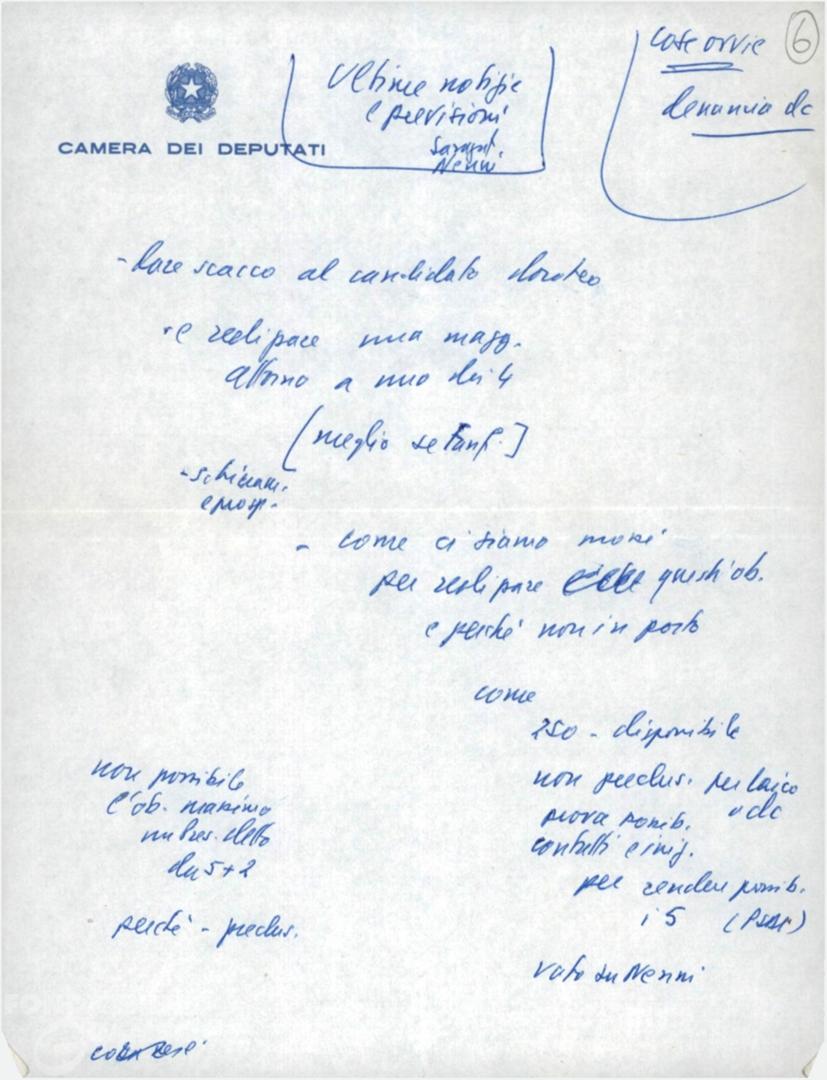 cose ovvie
6
denuncia dc
Ultime notizie
e previsioni
Saragat.
Nenni
CAMERA DEI DEPUTATI
- dare scacco al candidato doroteo
- e realizzare una magg.
attorno a uno dei 4
[meglio se Fanf.]
- schieram.
e prosp.
- come ci siamo mossi
per realizzare questi ob.
e perché non in porto
come
250 - disponibile
non preclus. per laico
o dc
prova possib.
contatti e iniz.
per rendere possib.
i 5 (PSDI)
voto su Nenni
non possibile
l'ob. massimo
un Pres. eletto
da 5+2
perché - preclus.